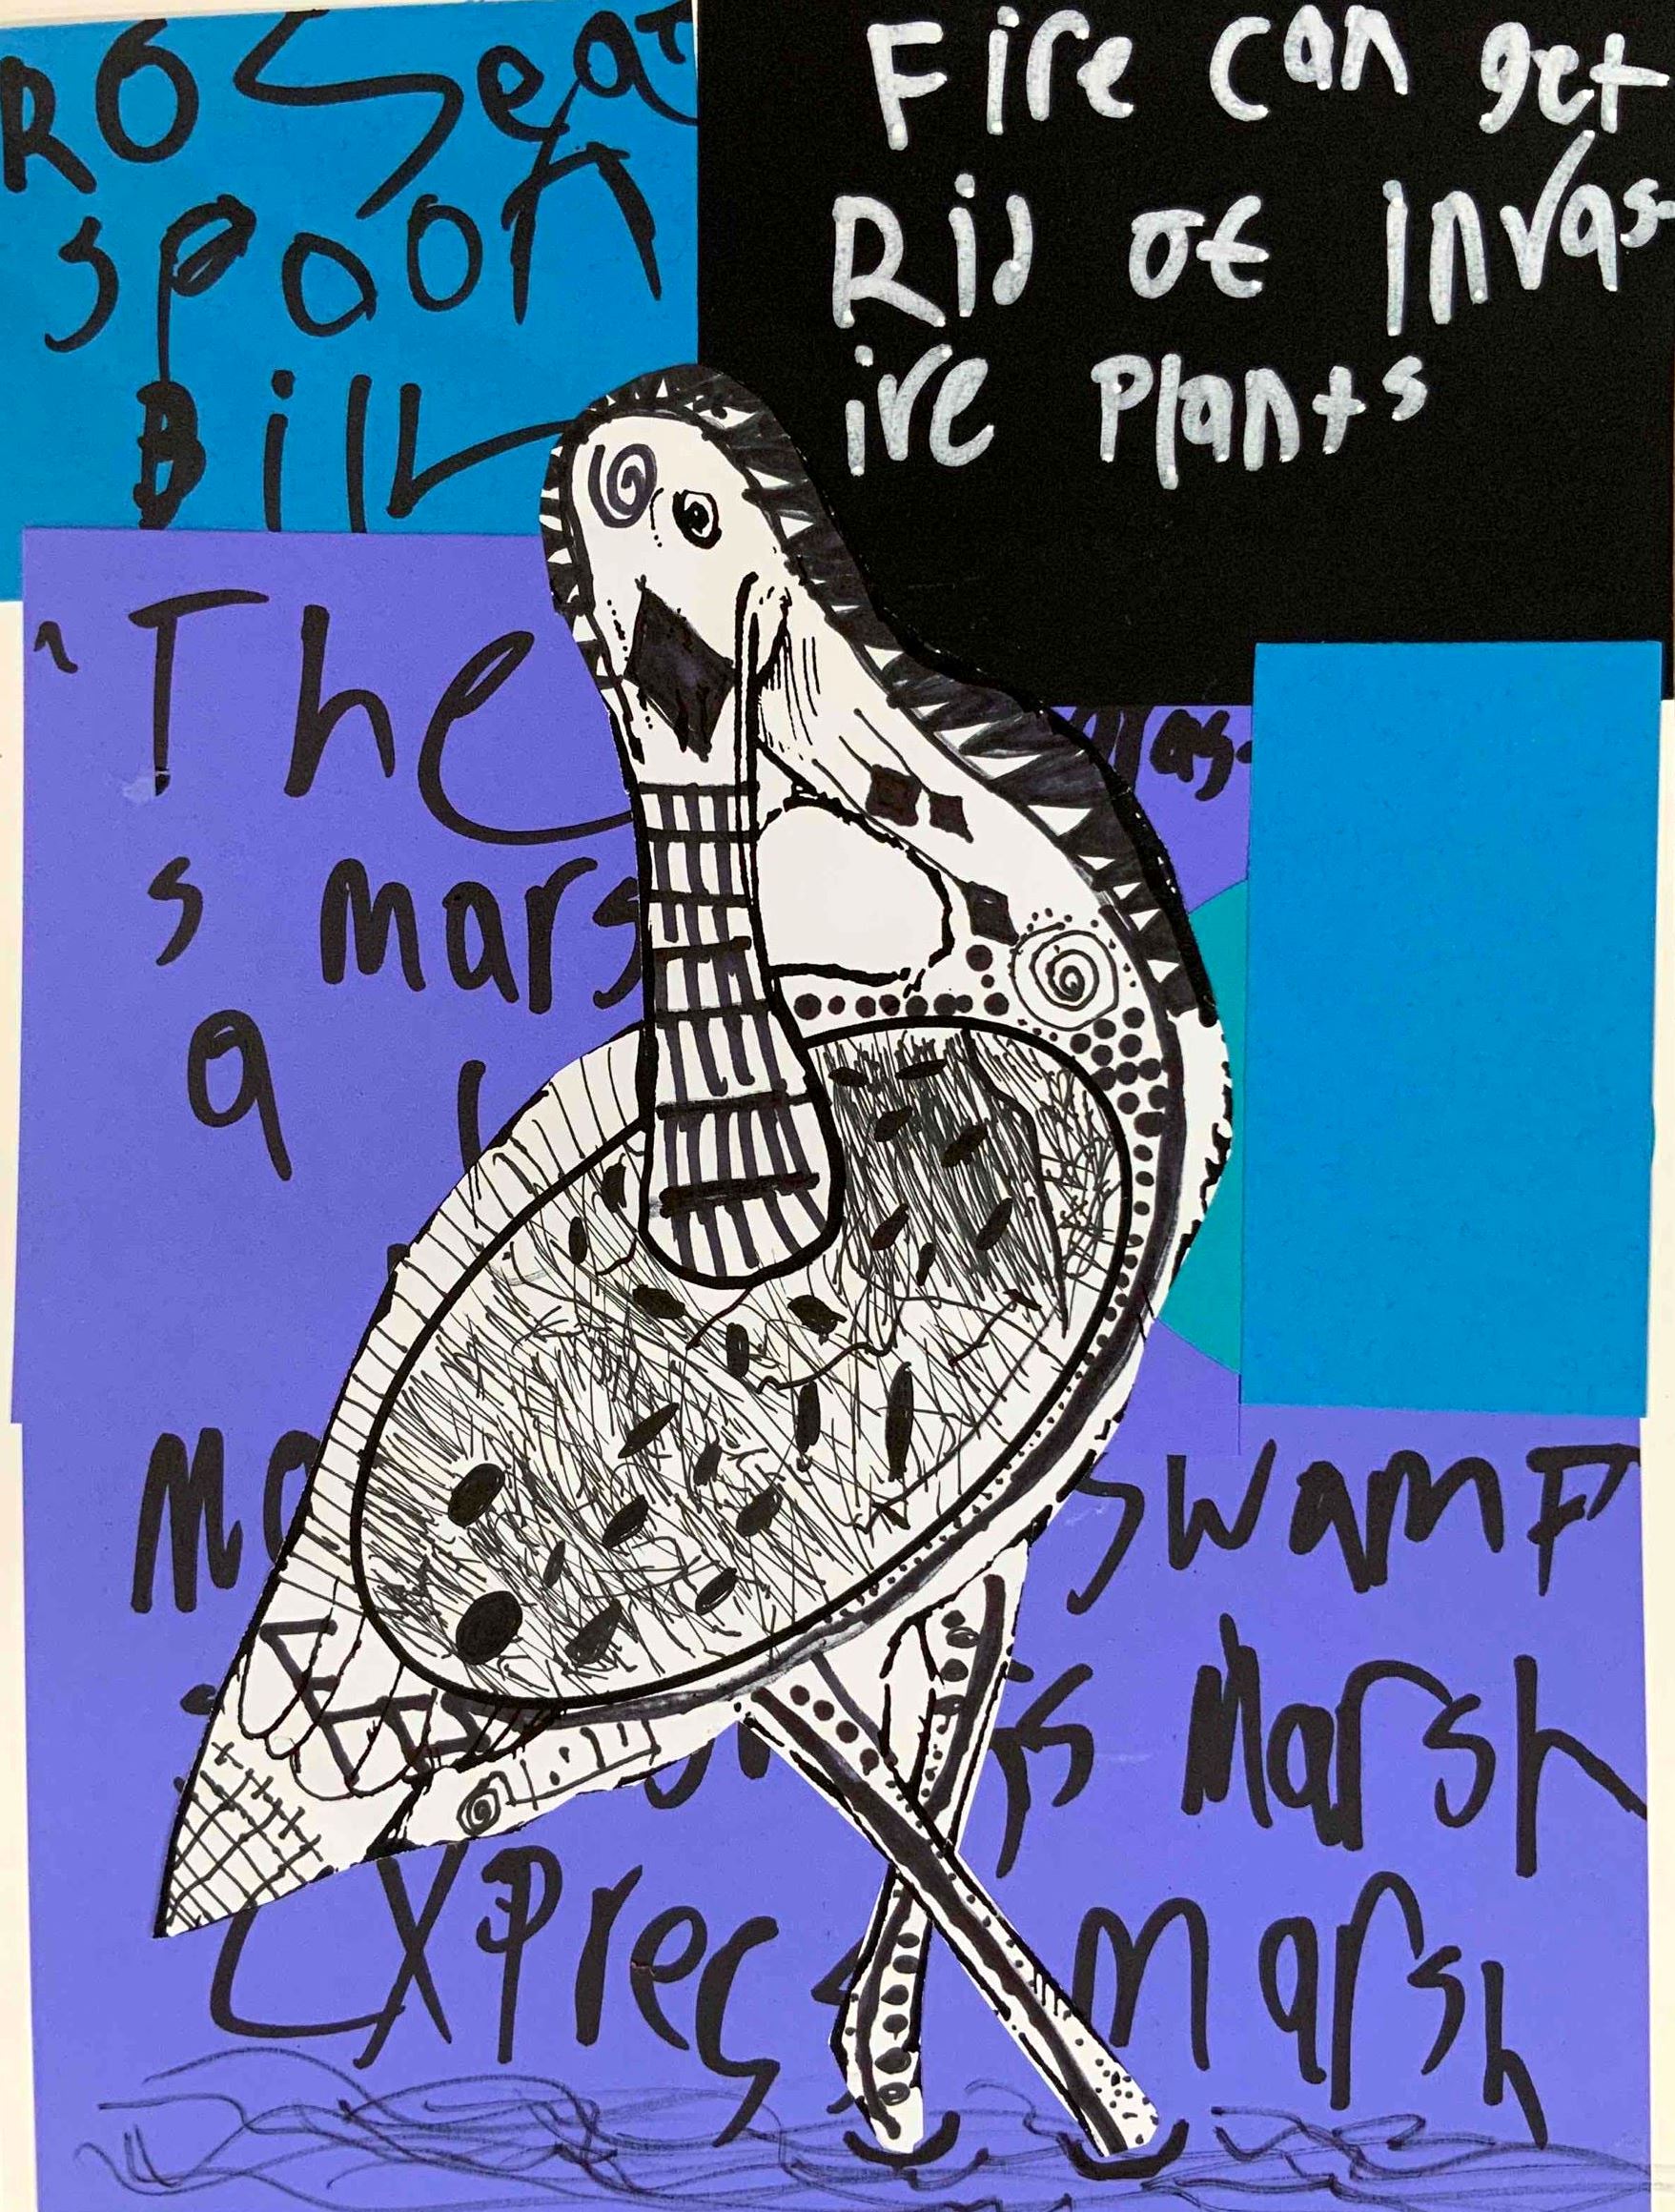 ROSeat
spoon
Bill
Fire can get
Rid of Invas-
ive Plants
The
s mars
a
swamp
is Marsh
Expres Marsh